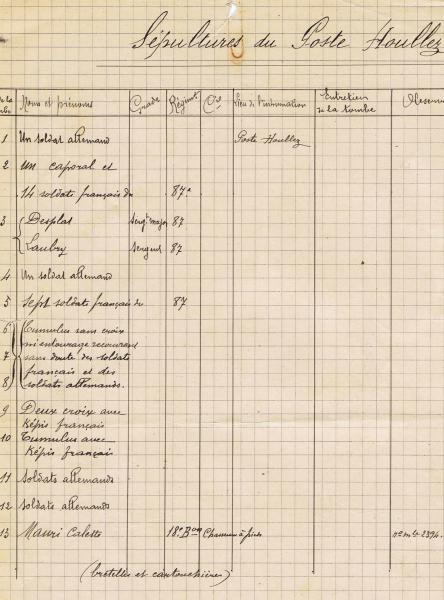 Sépultures du Poste Houllez
de la Noms et prénoms Grade Régiment Cie Lieu de l'inhumation Entretien de la tombe Observ
1 Un soldat allemand Poste Houllez
2 un caporal et
14 soldats français du 87e
3 Desplat sergt major 87
Laubry sergent 87
4 Un soldat allemand
5 Sept soldats français du 87
6 Tumulus sans croix
ni entourage recouvrant
7 sans doute des soldats
français et des
8 soldats allemands.
9 Deux croix avec
képis français
10 Tumulus avec
képis français
11 Soldats allemands
12 Soldats allemands
13 Mauri 18e Bon Chasseurs à pieds 2894.
(bretelles et cartouchières)